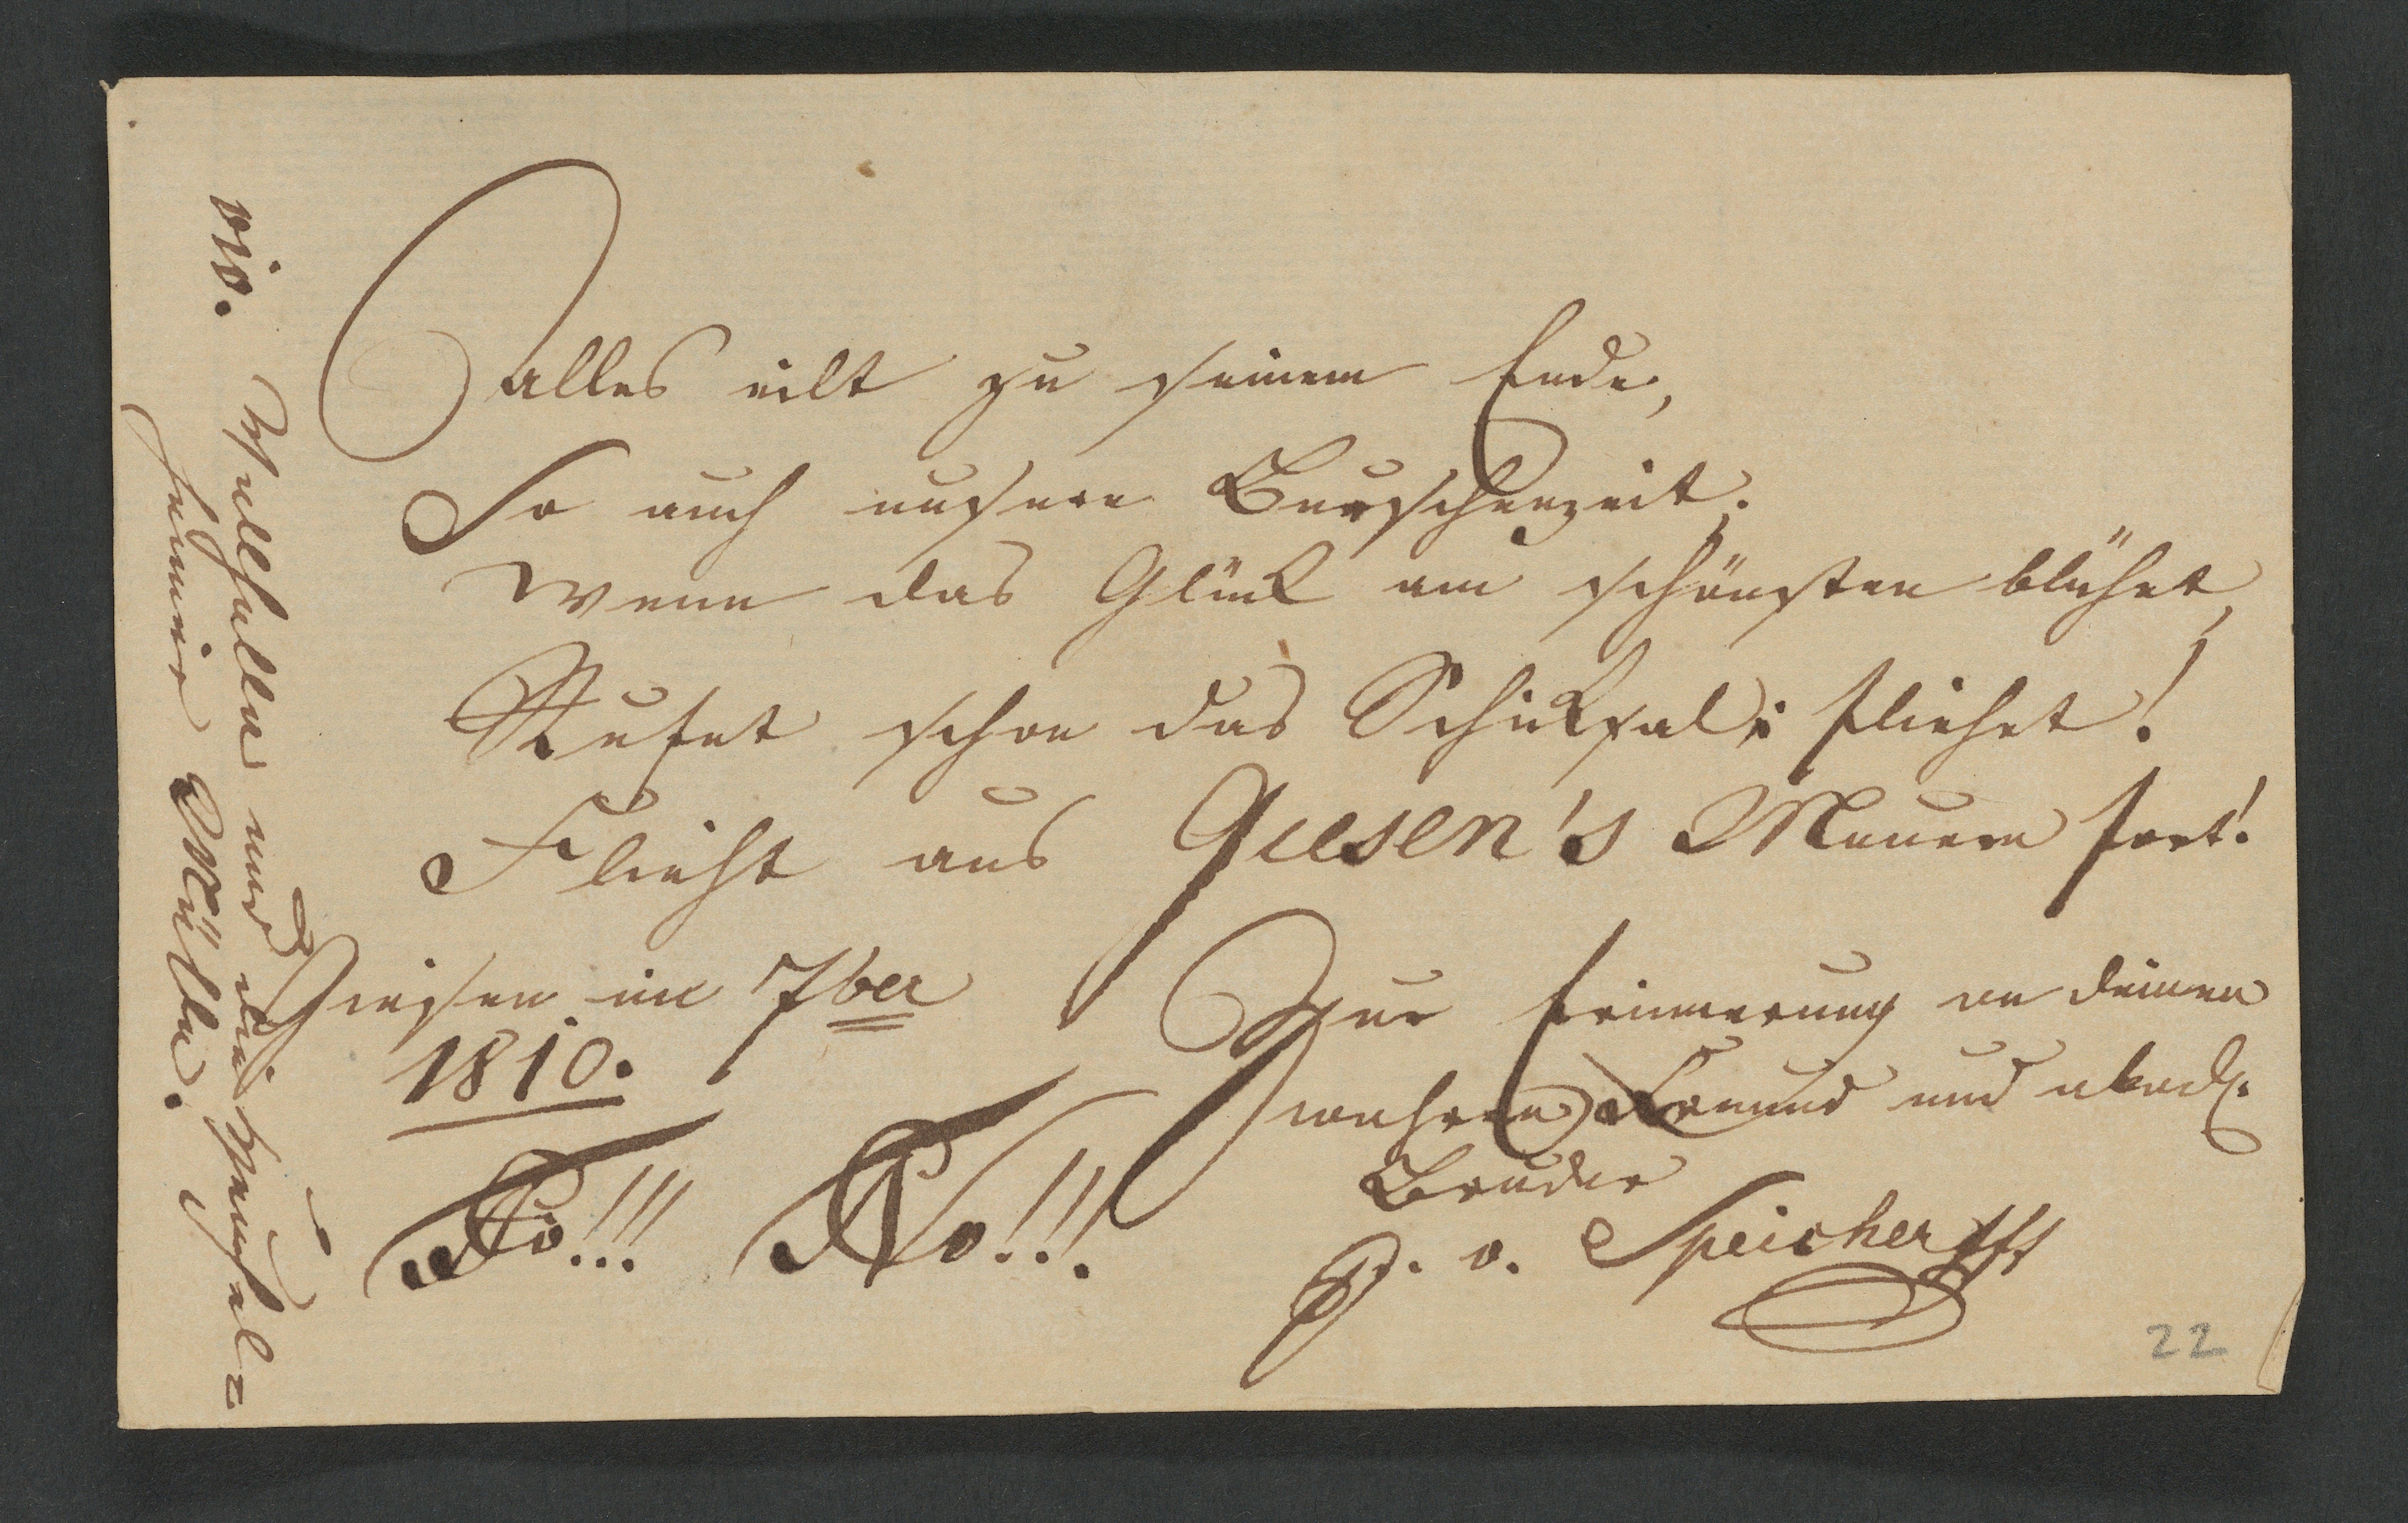 Alles eilt zu seinem Ende,
So auch unsere Burschenzeit.
Wenn das Glük am schönsten blühet,
Rufet schon das Schiksal: fliehet!
Flieht aus Giesen's Mauern fort!
Giesen im 7ber
1810.
Zur Erinnerung an deinen
wahren Freund und akad.
Bruder
v. Speicher
22
vio.
und die
Mühle.